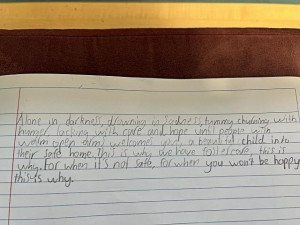 Alone in darkness, drowning in sadness, tummy churning with
hunger, lacking with care and hope until people with
warm open arms welcomes you, a beautiful child into
their safe home. This is why we have foster care, this is
why. For when it's not safe, for when you won't be happy
this is why.